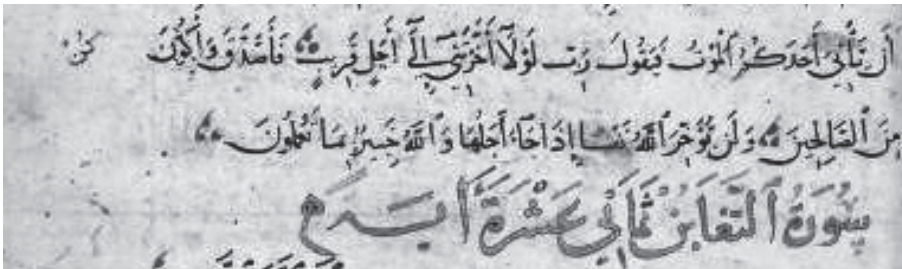 أَن يَأْتِيَ أَحَدَكُمُ ٱلْمَوْتُ فَيَقُولَ رَبِّ لَوْلَا أَخَّرْتَنِي إِلَىٰ أَجَلٍ قَرِيبٍ فَأَصَّدَّقَ وَأَكُونَ
مِنَ ٱلصَّالِحِينَ وَلَن يُؤَخِّرَ ٱللَّهُ نَفْسًا إِذَا جَاءَ أَجَلُهَا وَٱللَّهُ خَبِيرٌ بِمَا تَعْمَلُونَ
سُورَةُ ٱلتَّغَابُنِ ثَمَانِي عَشْرَةَ